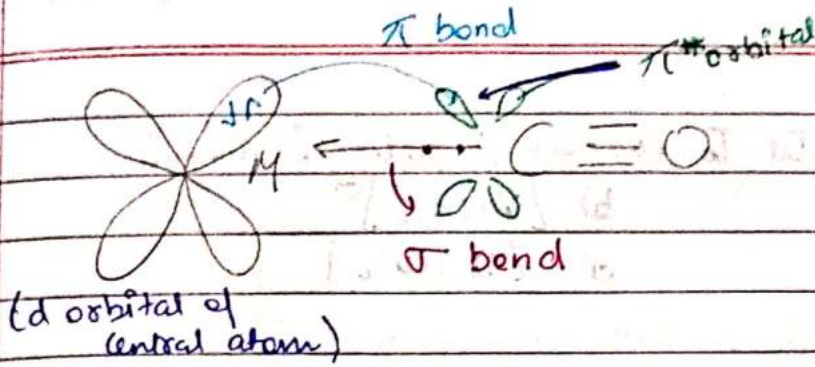 π bond
π* orbital
↿⇂
M ← •• C ≡ O
σ bend
(d orbital of
central atom)